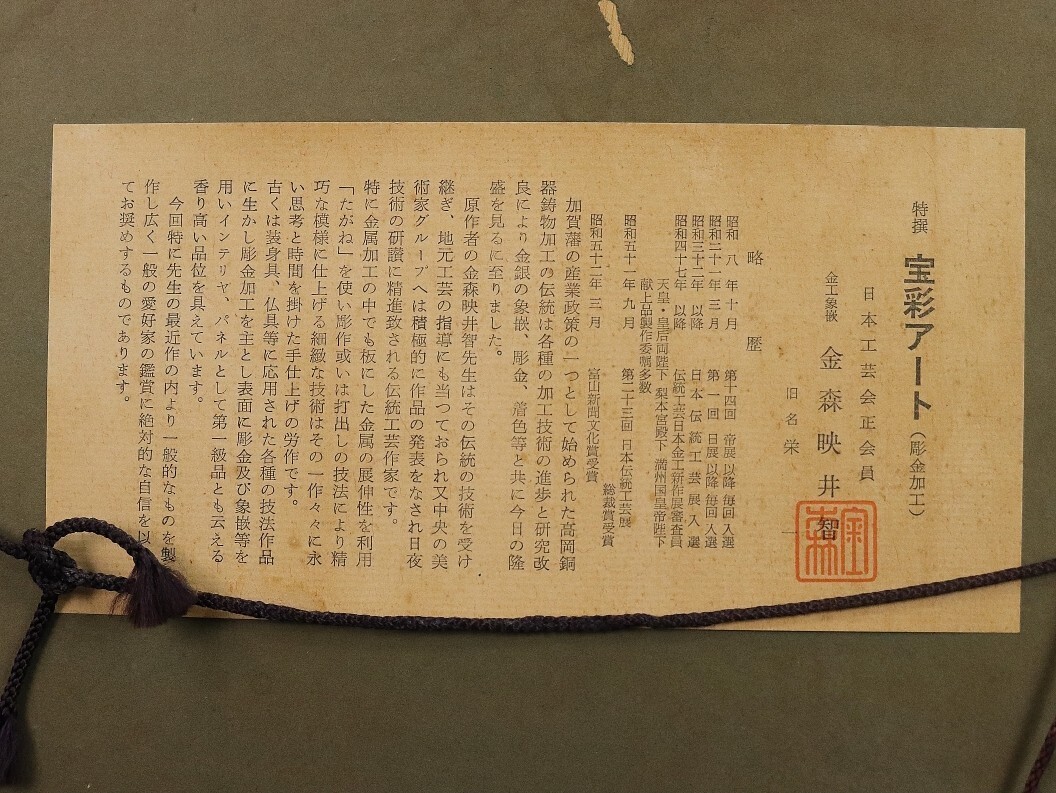 特撰 宝彩アート（彫金加工）
日本工芸会正会員
金工象嵌 金森映井智
旧名栄一
金森
略歴
昭和 八 年十月 第十四回 帝展 以降 毎回入選
昭和二十一年三月 第一回 日展 以降 毎回入選
昭和三十二年 以降 日本伝統工芸展入選
昭和四十七年 以降 伝統工芸日本金工新作展審査員
天皇・皇后両陛下 梨本宮殿下 満州国皇帝陛下
献上品製作委嘱多数
昭和五十一年 九月 第二十三回 日本伝統工芸展
総裁賞受賞
昭和五十二年 三月 富山新聞文化賞受賞
加賀藩の産業政策の一つとして始められた高岡銅
器鋳物加工の伝統は各種の加工技術の進歩と研究改
良により金銀の象嵌、彫金、着色等と共に今日の隆
盛を見るに至りました。
原作者の金森映井智先生はその伝統の技術を受け
継ぎ、地元工芸の指導にも当つておられ又中央の美
術家グループへは積極的に作品の発表をなされ日夜
技術の研讃に精進致される伝統工芸作家です。
特に金属加工の中でも板にした金属の展伸性を利用
「たがね」を使い彫作或いは打出しの技法により精
巧な模様に仕上げる細緻な技術はその一作々々に永
い思考と時間を掛けた手仕上げの労作です。
古くは装身具、仏具等に応用された各種の技法作品
に生かし彫金加工を主とし表面に彫金及び象嵌等を
用いインテリヤ、パネルとして第一級品とも云える
香り高い品位を具えています。
今回特に先生の最近作の内より一般的なものを製
作し広く一般の愛好家の鑑賞に絶対的な自信を以
てお奨めするものであります。